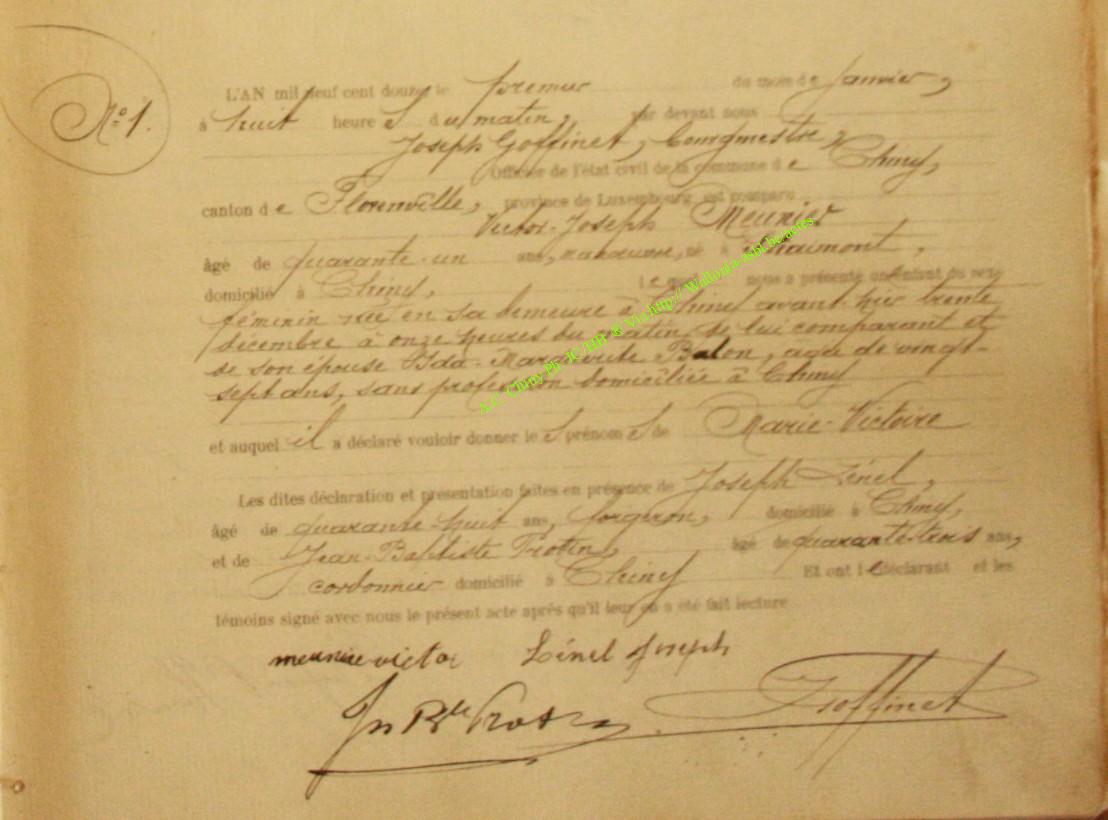 N° 1.
L'AN mil neuf cent douze, le premier du mois de Janvier,
à huit heures du matin, par devant nous
Joseph Goffinet, Bourgmestre,
Officier de l'état civil de la commune de Chiny,
canton de Florenville, province de Luxembourg, est comparu
Victor-Joseph Meunier
âgé de quarante-un ans, manœuvre, né à Chaimont,
domicilié à Chiny, Lequel nous a présenté un enfant du sexe
féminin née en sa demeure à Chiny avant-hier trente
décembre à onze heures du matin, de lui comparant et
de son épouse Ida-Marguerite Balon, agée de vingt-
sept ans, sans profession domiciliée à Chiny
et auquel il a déclaré vouloir donner les prénoms de Marie-Victoire
Les dites déclaration et présentation faites en présence de Joseph Lénel,
âgé de quarante-huit ans, forgeron, domicilié à Chiny,
et de Jean-Baptiste Protin, âgé de quarante-trois ans,
cordonnier domicilié à Chiny Et ont le déclarant et les
témoins signé avec nous le présent acte après qu'il leur en a été fait lecture
meunier victor Lénel Joseph
Jn Bte Protin JGoffinet